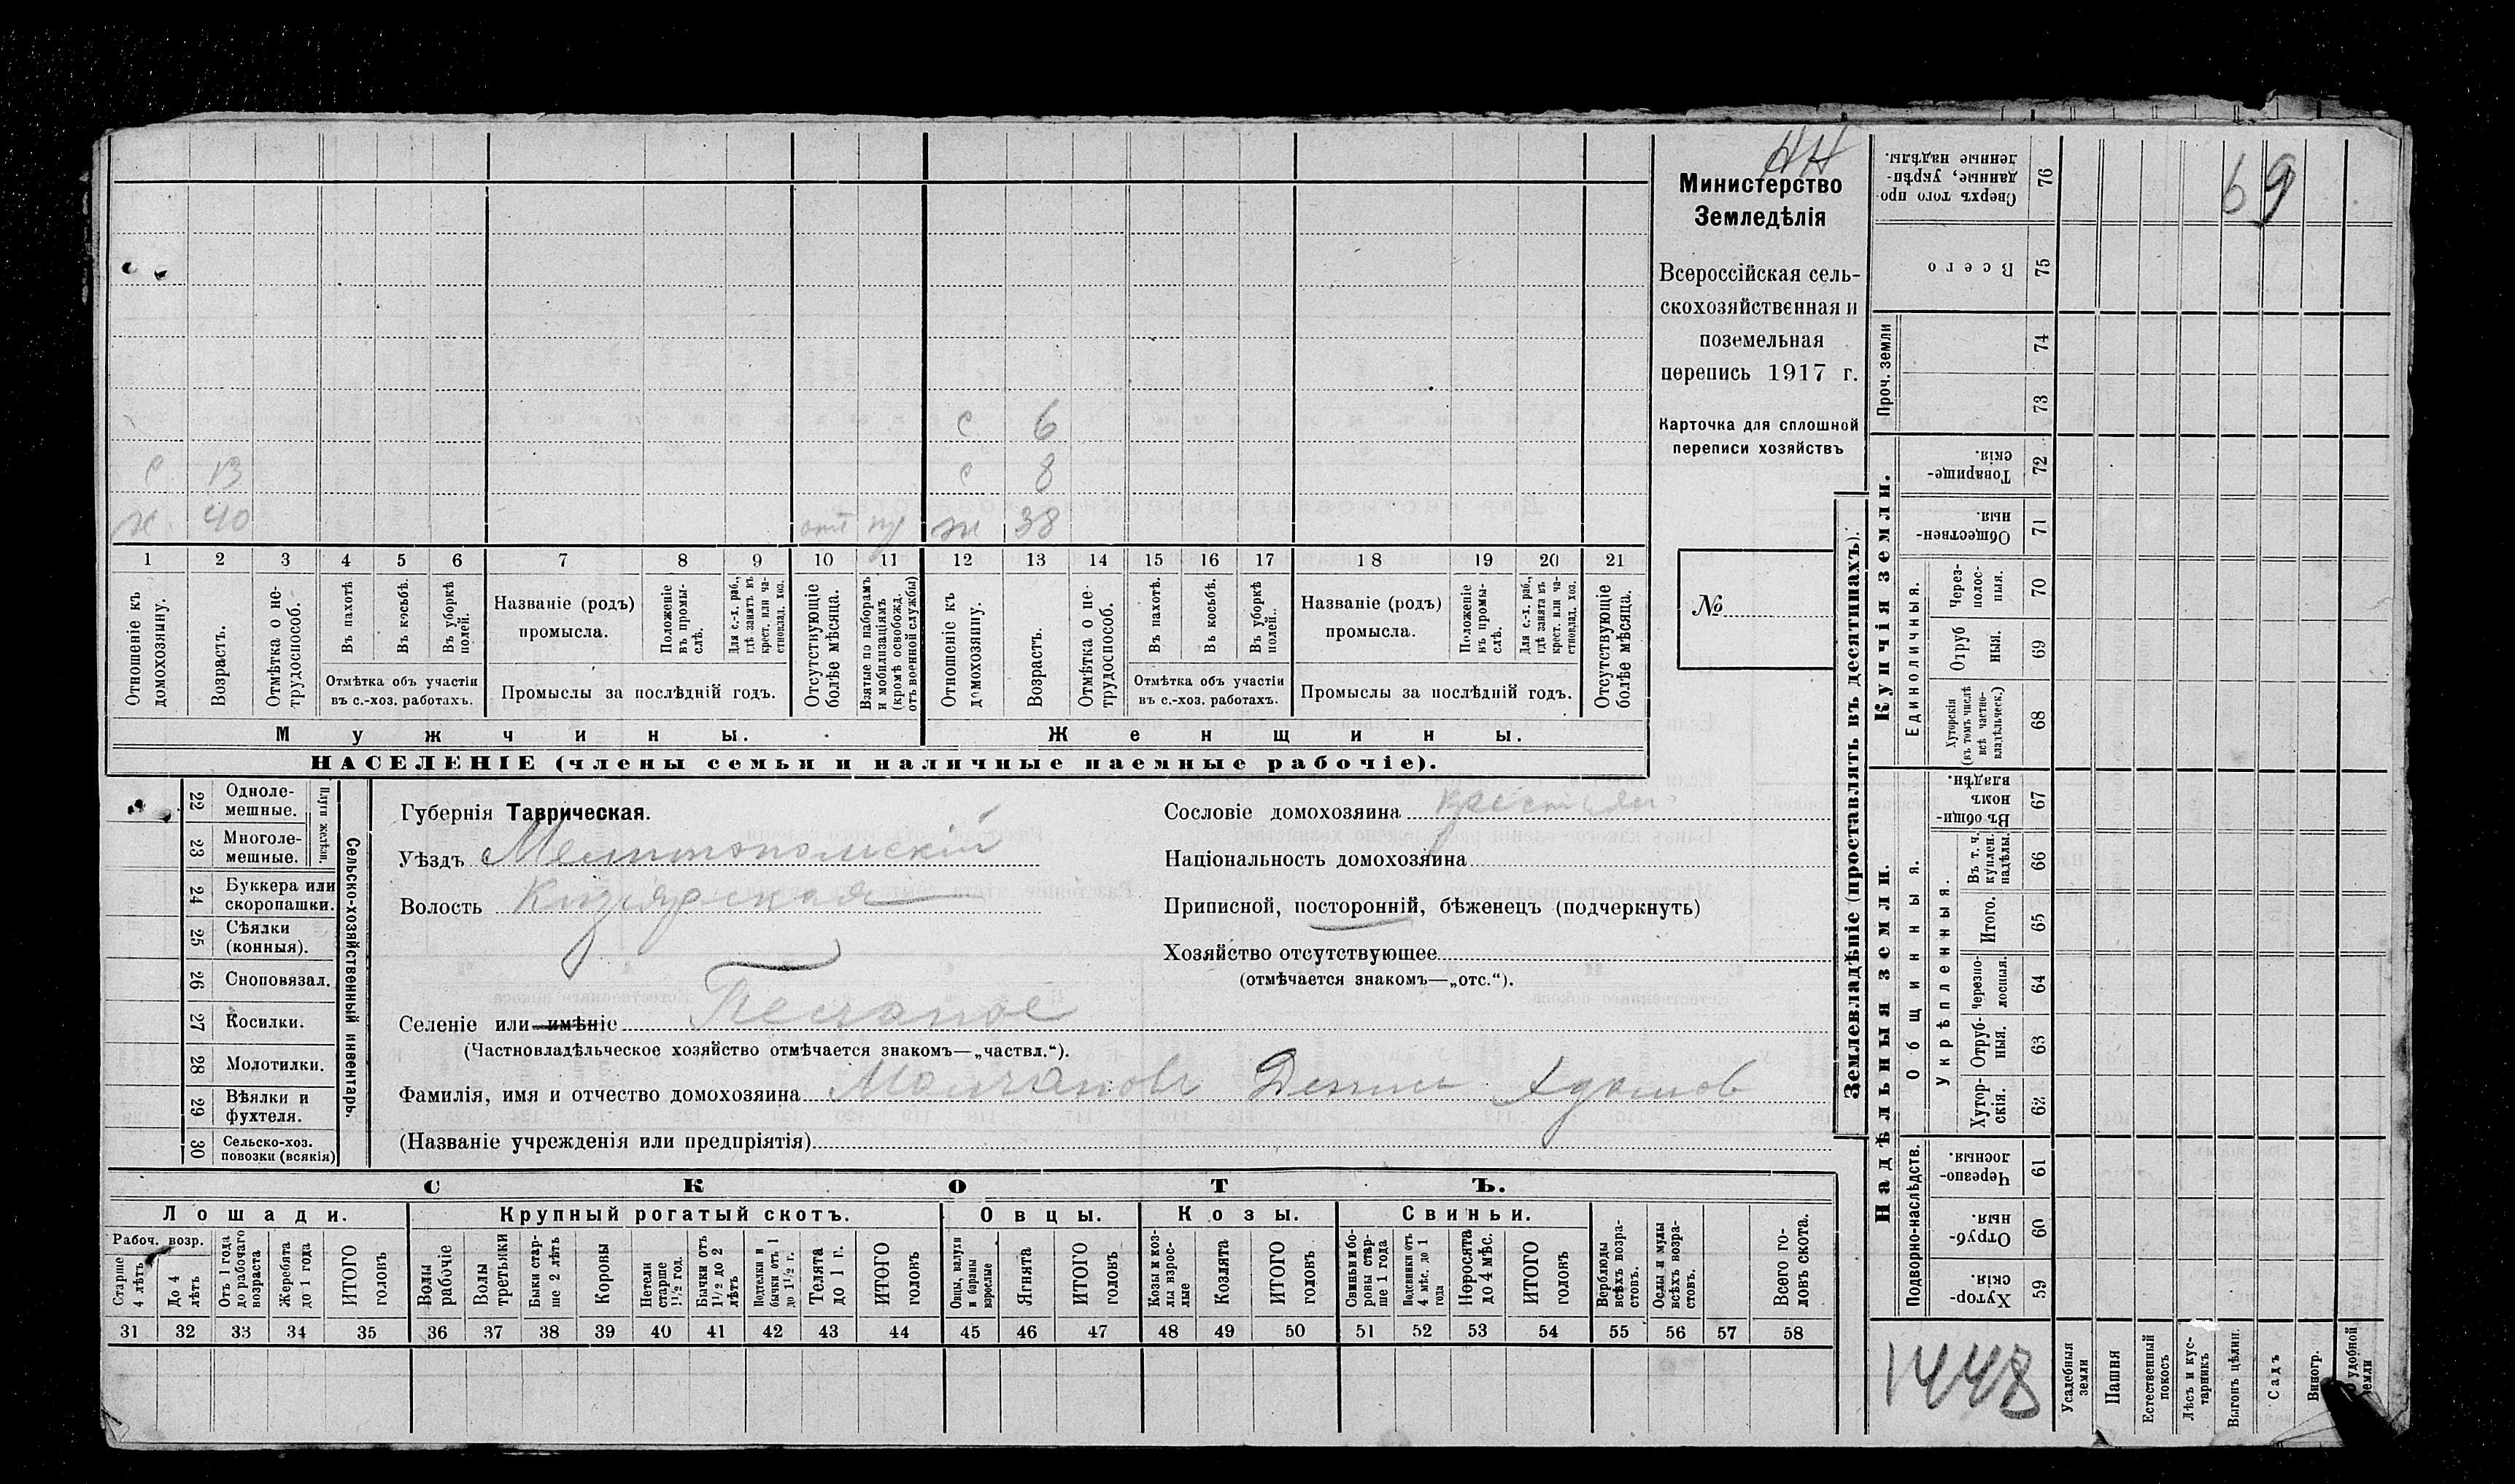 НН
Министерство
Земледѣлія
Всероссійская сель-
скохозяйственная и
поземельная
перепись 1917 г.
Карточка для сплошной
переписи хозяйствъ
№
с 6
с 13 с 8
х 40 отс ж 38
1 2 3 4 5 6 7 8 9 10 11 12 13 14 15 16 17 18 19 20 21
Отношеніе къ домохозяину.
Возрастъ.
Отмѣтка о не-трудоспособ.
Въ пахотѣ
Въ косьбѣ.
Въ уборкѣ полей.
Отмѣтка объ участіи
въ с.-хоз. работахъ.
Названіе (родъ)
промысла.
Положеніе въ промы-слѣ.
Для с.-х. раб., гдѣ занятъ въ крест. или ча-стновлад. хоз.
Промыслы за послѣдній годъ.
Отсутствующіе болѣе мѣсяца.
Взятые по наборамъ и мобилизаціямъ (кромѣ освобожд. отъ военной службы)
Отношеніе къ домохозяину.
Возрастъ.
Отмѣтка о не-трудоспособ.
Въ пахотѣ.
Въ косьбѣ.
Въ уборкѣ полей.
Отмѣтка объ участіи
въ с.-хоз. работахъ.
Названіе (родъ)
промысла.
Положеніе въ промы-слѣ.
Для с.-х. раб., гдѣ занята въ крест. или ча-стновлад. хоз.
Промыслы за послѣдній годъ.
Отсутствующіе болѣе мѣсяца.
Мужчины. Женщины.
НАСЕЛЕНІЕ (члены семьи и наличные наемные рабочіе).
22 Одноле-мешные.
23 Многоле-мешные.
Плуги желѣзн.
24 Буккера или скоропашки.
25 Сѣялки (конныя).
26 Сноповязал.
27 Косилки.
28 Молотилки.
29 Вѣялки и фухтеля.
30 Сельско-хоз. повозки (всякія)
Сельско-хозяйственный инвентарь.
Губернія Таврическая.
Уѣздъ Мелитопольскій
Волость Кизіярская
Селеніе или имѣніе Песчаное
(Частновладѣльческое хозяйство отмѣчается знакомъ—„частвл.“).
Фамилія, имя и отчество домохозяина Молчановъ Денис Адамов
(Названіе учрежденія или предпріятія)
Сословіе домохозяина крестьян.
Національность домохозяина
Приписной, посторонній, бѣженецъ (подчеркнуть)
Хозяйство отсутствующее
(отмѣчается знакомъ—„отс.“).
СКОТЪ.
Лошади. Крупный рогатый скотъ. Овцы. Козы. Свиньи.
Рабоч. возр.
Старше 4 лѣтъ
До 4 лѣтъ
Отъ 1 года до рабочаго возраста
Жеребята до 1 года
ИТОГО головъ
Волы рабочіе
Волы третьяки
Быки стар-ше 2 лѣтъ
Коровы
Нетели старше 1½ год.
Бычки отъ 1½ до 2 лѣтъ
Подтелки и бычки отъ 1 до 1½ г.
Телята до 1 г.
ИТОГО головъ
Овцы, валухи и бараны взрослые
Ягнята
ИТОГО головъ
Козы и коз-лы взрос-лые
Козлята
ИТОГО головъ
Свиньи и бо-ровы стар-ше 1 года
Подсвинки отъ 4 мѣс. до 1 года
Поросята до 4 мѣс.
ИТОГО головъ
Верблюды всѣхъ возра-стовъ.
Ослы и мулы всѣхъ возра-стовъ.
Всего го-ловъ скота.
31 32 33 34 35 36 37 38 39 40 41 42 43 44 45 46 47 48 49 50 51 52 53 54 55 56 57 58
Землевладѣніе (проставлять въ десятинахъ).
69
Сверхъ того про-данные, укрѣп-ленные надѣлы. 76
Всего 75
Проч. земли 74
73
Купчія земли.
Товарище-скія. 72
Обществен-ныя. 71
Единоличныя.
Через-полос-ныя. 70
Отруб ныя. 69
Хуторскія (въ томъ числѣ всѣ частно-владѣльческ.) 68
Надѣльныя земли.
Общинныя.
Въ общи-номъ владѣн. 67
Укрѣпленныя.
Въ т. ч. куплен. надѣлы. 66
Итого. 65
Черезпо-лосныя. 64
Отруб-ныя. 63
Хутор-скія. 62
Подворно-наслѣдств.
Черезпо-лосныя. 61
Отруб-ныя. 60
Хутор-скія. 59
1448
Усадебныя земли
Пашня
Естественный покосъ
Лѣсъ и кус-тарникъ
Выгонъ цѣлин.
Садъ
Виногр.
удобной земли